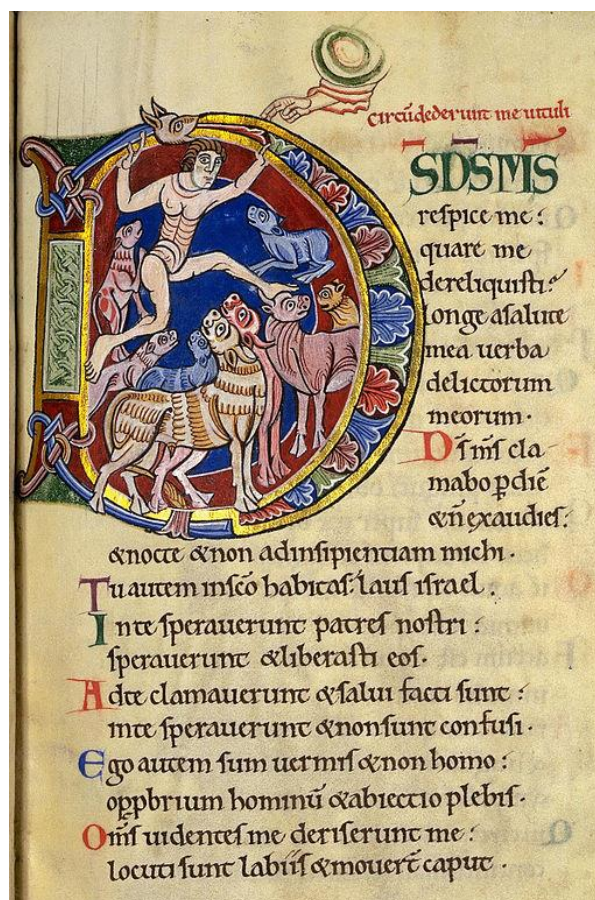 circūdederunt me uituli
DS DS MS
respice me:
quare me
dereliquisti:
longe asalute
mea uerba
delictorum
meorum·
Ds ms cla
mabo p diē
& ñ exaudies:
& nocte & non adinsipientiam michi·
Tu autem inscō habitas: laus israel:
In te sperauerunt patres nostri:
sperauerunt & liberasti eos·
Adte clamauerunt & salui facti sunt:
inte sperauerunt & nonsunt confusi·
Ego autem sum uermis & non homo:
opprbrium hominū & abiectio plebis·
Omſ uidentes me deriserunt me:
locuti sunt labiis & mouerē caput·